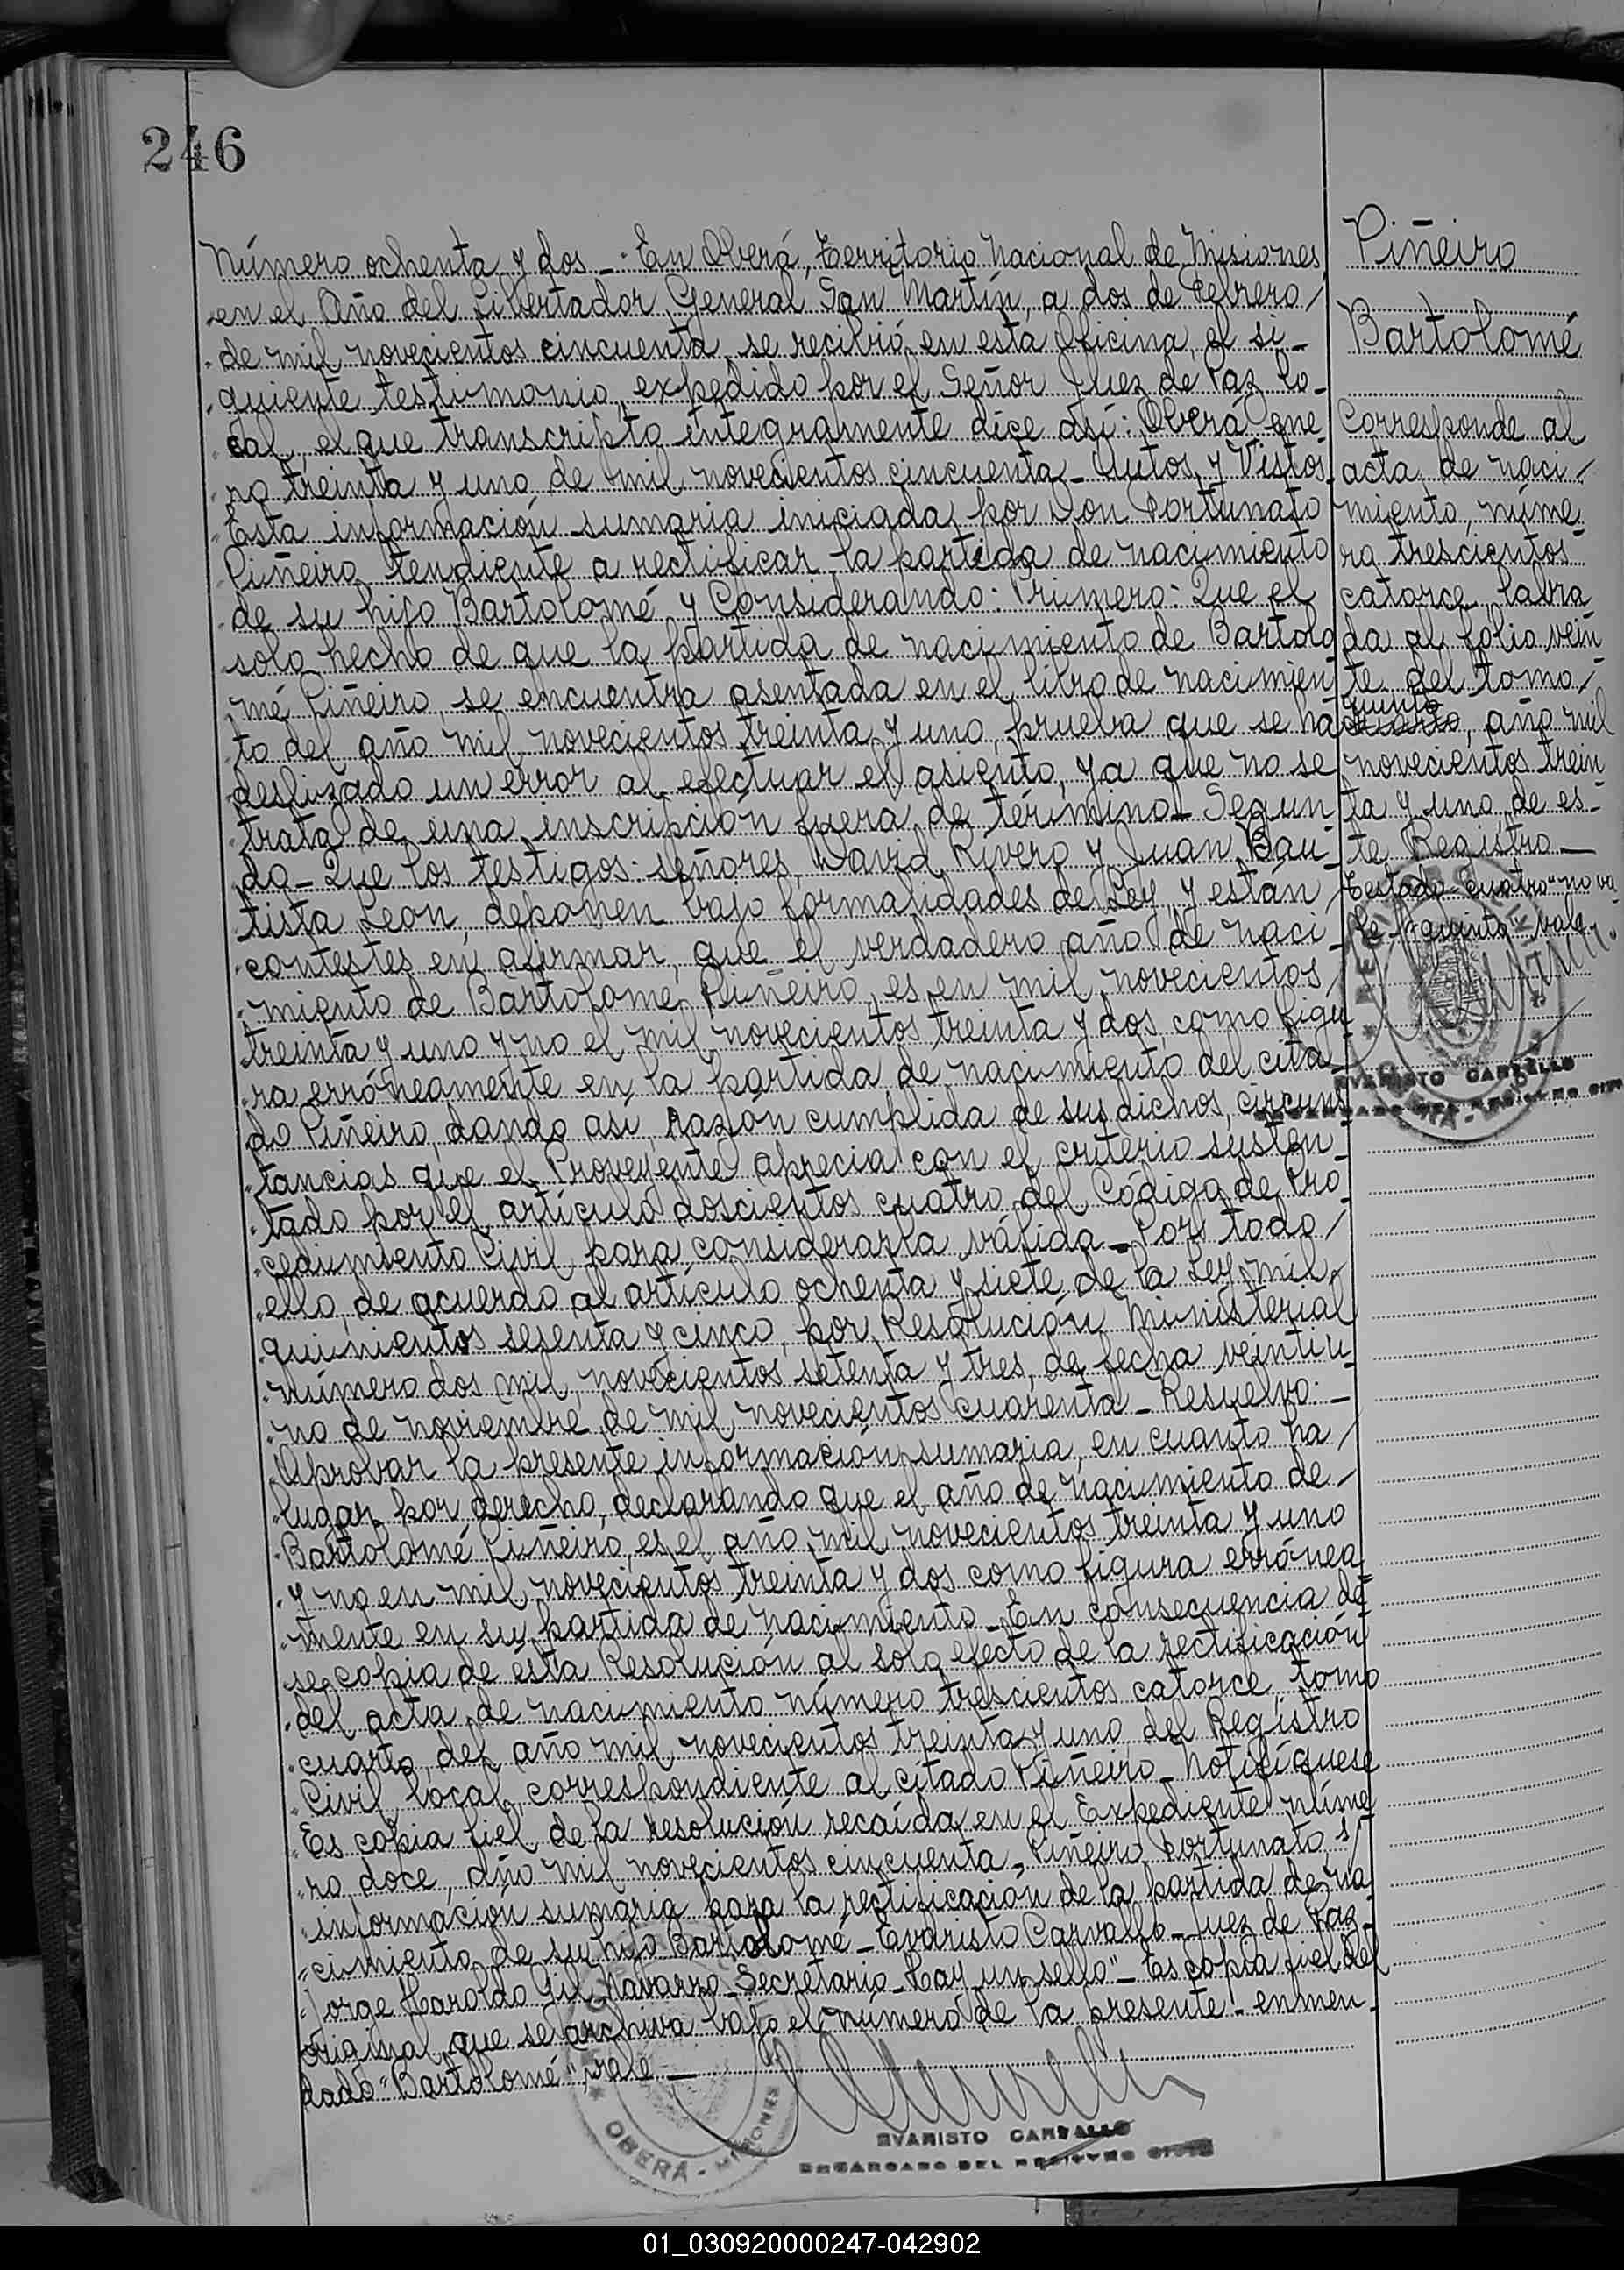 246
Número ochenta y dos _ En Oberá, Territorio Nacional de Misiones,
en el Año del Libertador General San Martín, a dos de Febrero /
de mil novecientos cincuenta, se recibió en esta Oficina, el si_
guiente testimonio, expedido por el Señor Juez de Paz lo_
cal, el que transcripto íntegramente dice así: Oberá ene_
ro treinta y uno de mil novecientos cincuenta _ Autos y Vistos.
Esta información sumaria iniciada por Don Fortunato
Piñeiro tendiente a rectificar la partida de nacimiento
de su hijo Bartolomé y Considerando: Primero: Que el
solo hecho de que la partida de nacimiento de Bartolo
mé Piñeiro, se encuentra asentada en el libro de nacimien
to del año mil novecientos treinta y uno, prueba que se ha
deslizado un error al efectuar el asiento, ya que no se
trata de una inscripción fuera de término _ Segun_
do _ Que los testigos: señores David Rivero y Juan Bau_
tista Leon, deponen bajo formalidades de Ley, y están
contestes en afirmar, que el verdadero año de naci_
miento de Bartolomé Piñeiro, es en mil novecientos /
treinta y uno y no el mil novecientos treinta y dos, como figu
ra erróneamente en la partida de nacimiento del cita_
do Piñeiro, dando así, razón cumplida de sus dichos, circuns
tancias que el Proveyente aprecia con el criterio susten_
tado por el artículo doscientos cuatro del Código de Pro_
cedimiento Civil para considerarla válida _ Por todo /
ello, de acuerdo al artículo ochenta y siete de la Ley mil
quinientos sesenta y cinco, por Resolución Ministerial
número dos mil, novecientos setenta y tres, de fecha veintiu_
no de noviembre de mil novecientos cuarenta _ Resuelvo: _
Aprobar la presente información sumaria, en cuanto ha /
lugar por derecho, declarando que el año de nacimiento de /
Bartolomé Piñeiro, es el año mil novecientos treinta y uno
y no en mil novecientos treinta y dos como figura errónea
mente en su partida de nacimiento _ En consecuencia dé
se copia de ésta Resolución al solo efecto de la rectificación
del acta de nacimiento número trescientos catorce, tomo
cuarto, del año mil novecientos treinta y uno del Registro
Civil local, correspondiente al citado Piñeiro _ Notifíquese
Es copia fiel de la resolución recaída en el Expediente núme
ro doce, año mil novecientos cincuenta _ Piñeiro Fortunato, s/
información sumaria para la rectificación de la partida de na
cimiento de su hijo Bartolomé _ Evaristo Carvallo _ Juez de Paz _
Jorge Haroldo Gil Navarro _ Secretario _ Hay un sello" _ Es copia fiel del
original, que se archiva bajo el número de la presente _ enmen_
dado "Bartolomé", vale _
EVARISTO CARVALLO
ENCARGADO DEL REGISTRO CIVIL
OBERÁ - MISIONES
Piñeiro
Bartolomé
Corresponde al
acta de naci /
miento, núme
ro trescientos
catorce, labra
da al folio vein
te del tomo /
quinto
cuarto, año mil
novecientos trein
ta y uno de es_
te Registro _
Testado "cuatro" no va
le "quinto" vale
EVARISTO CARVALLO
ENCARGADO DEL REGISTRO CIVIL
01_030920000247-042902